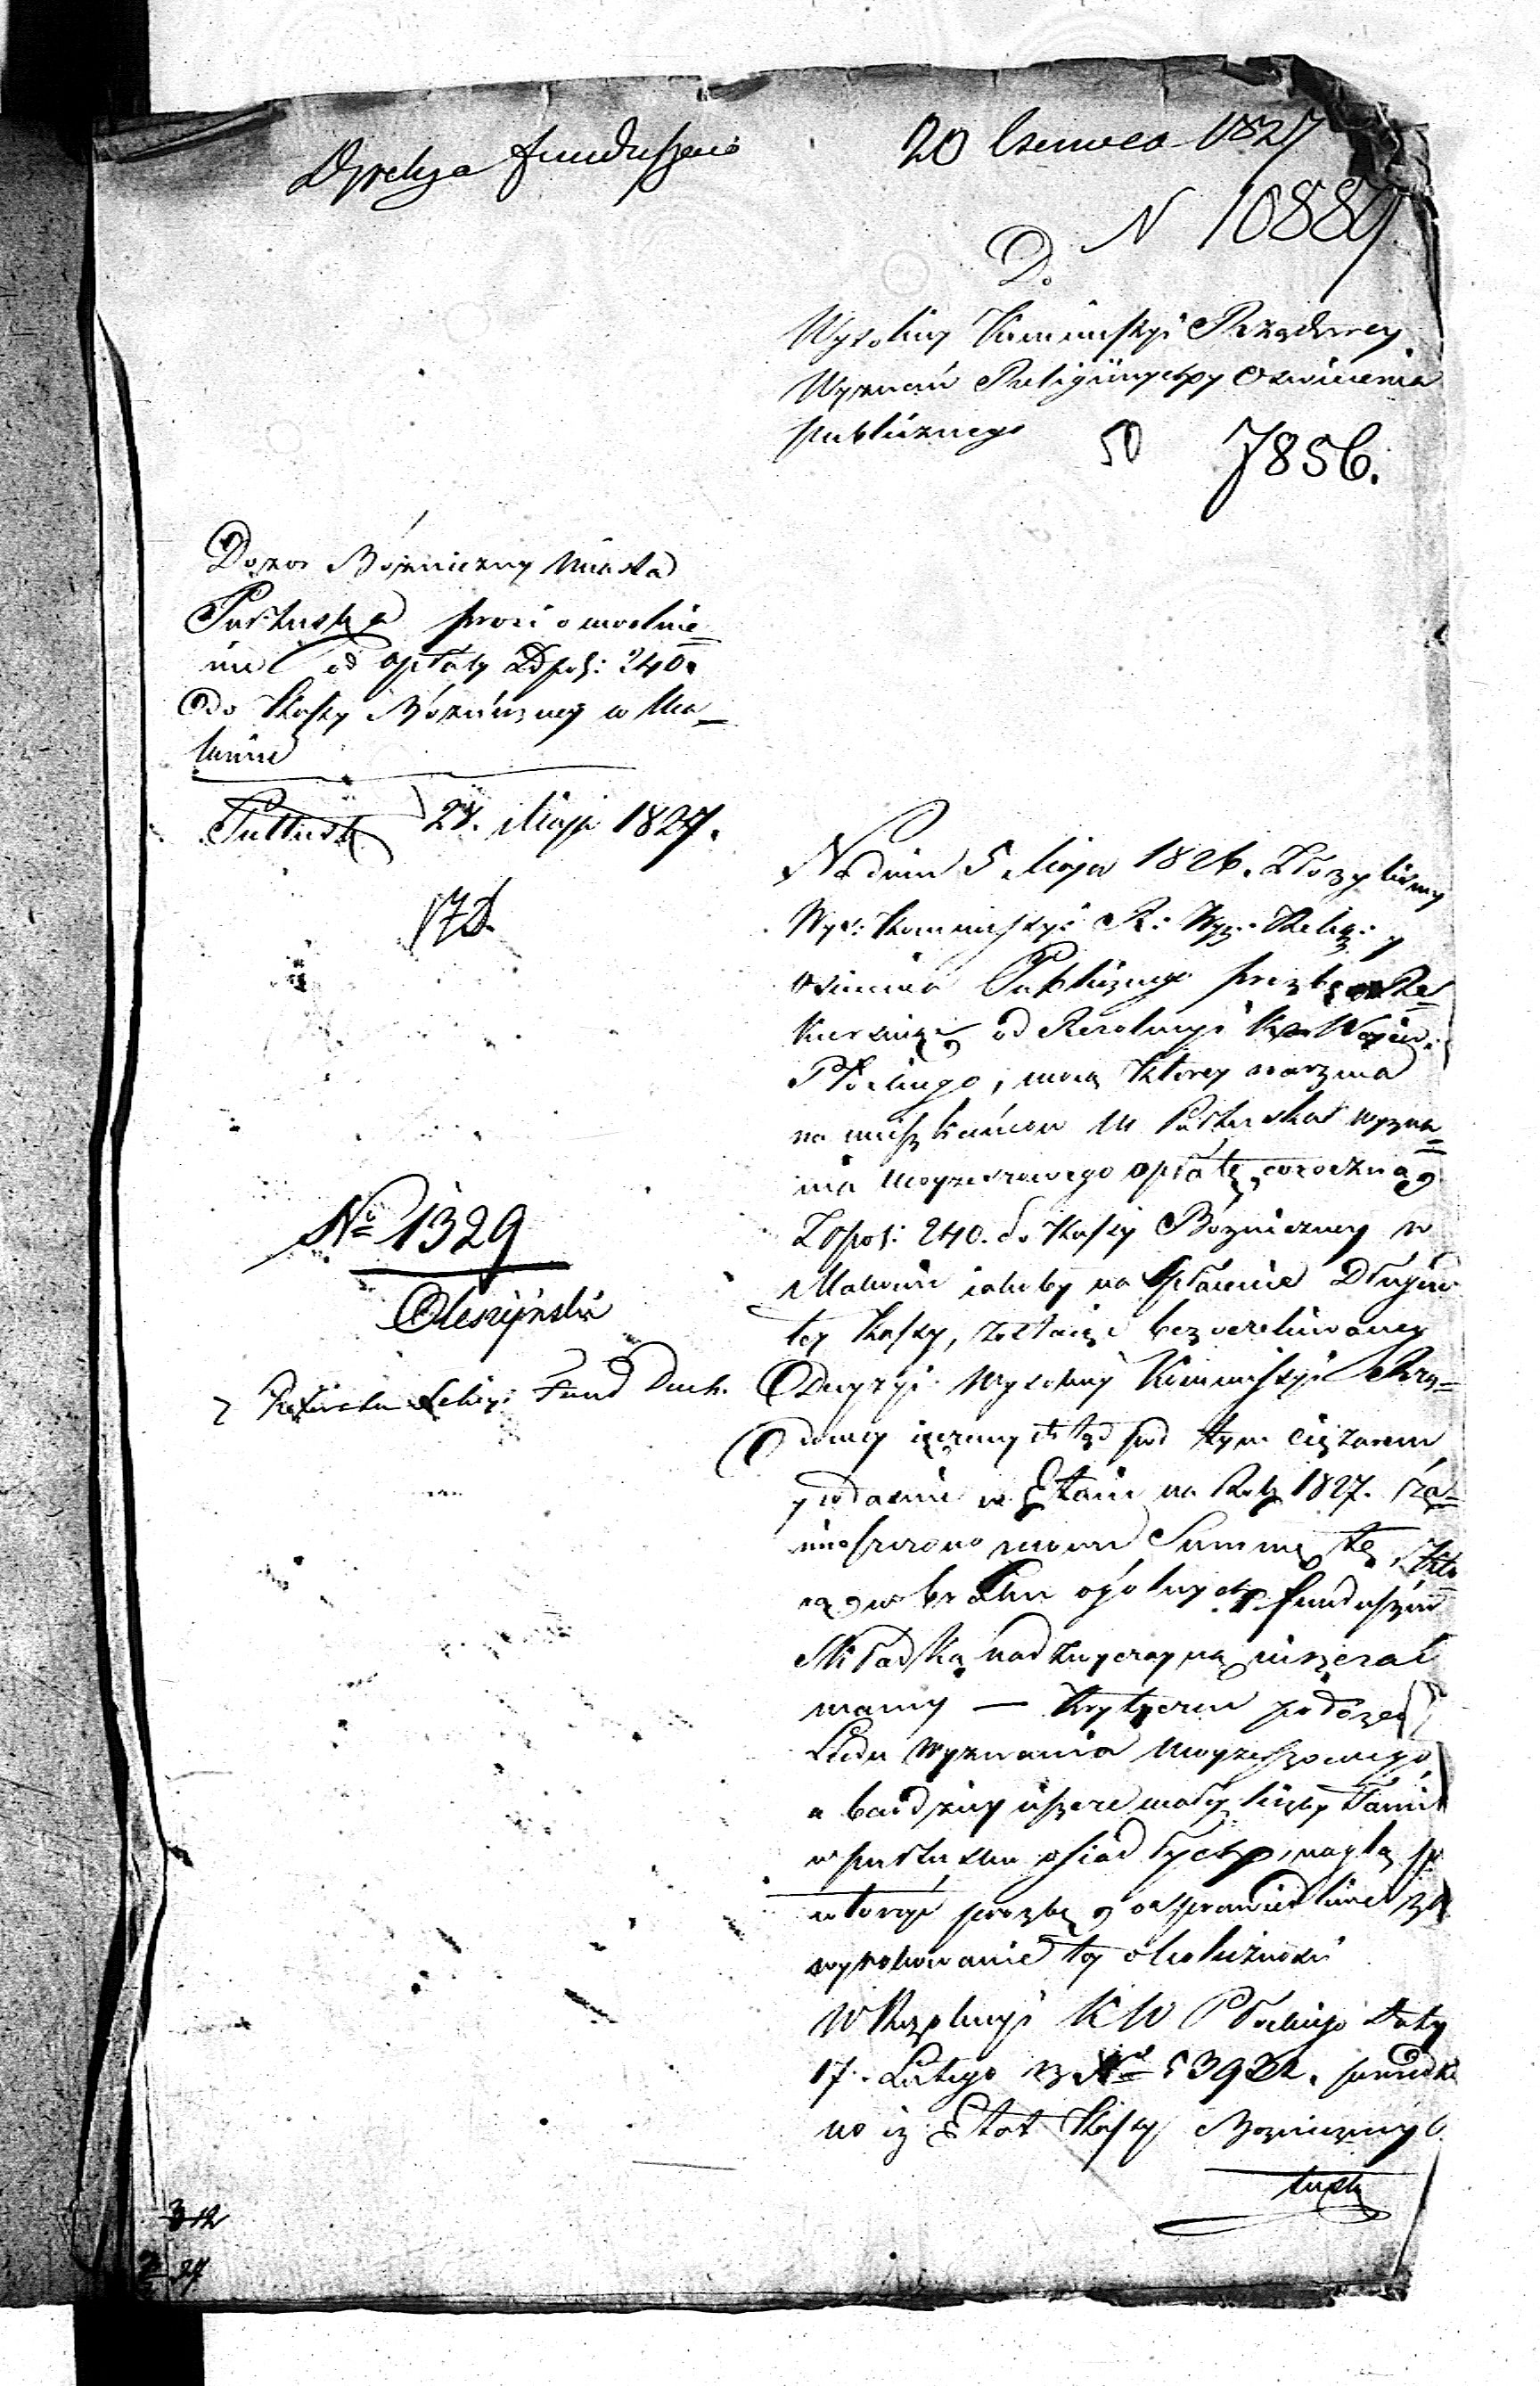 Dyrekcya funduszów
20 Czerwca 1827
N 10889
Do
Wysokiey Kommissyi Rządowey
Wyznań Religiinych y Oswiecenia
publicznego
50 7856.
Dozor Bóżniczny Miasta
Pułtuska prosi o uwolnie=
nie od opłaty Złpol: 240.
do Kassy Bóżniczney w Ma_
kowie
Pułtusk 28. Maja 1827.
172.
No 1329
Oleszyński
Fund Duch.
Na dniu 5 Maja 1826. Złożyliśmy
Wys: Kommissyi R: Wyz: Relig: y
Oswiecenia Publicznego prozbę Re=
kursuiącą od Rezolucyi Kom Wojew:
Płockiego, mocą ktorey naznacza
na mieszkańców M Pułtuska wyzna=
nia moyżeszowego opłatę coroczną
Złpol: 240. do Kassy Bóżniczney w
Makowie iakoby na spłacenie Długów
tey Kassy, zostaiąc bez oczekiwaney
Decyzyi Wysokiey Kommissyi Rzą=
dowey ięczemy dotąd pod tym ciężarem
y podanie w Etacie na Rok 1827. za=
mieszczono znowu Summę tę, któ
rą w braku ogólnych funduszów
Składką nadzwyczayną uiszczać
mamy — Krytyczne położenie
Ludu Wyznania Moyżeszowego,
a bardziey ieszcze mały liczby Famil
w Pułtusku osiadłych, nagla po
wtorzyć prozbę o sprawiedliwe
wyrokowanie tey okoliczności
W Rezolucyi KW Płockiego Daty
17. Lutego z No 53932. powiedzia
no iż Etat Kassy Bozniczney
tusk
3 12
27